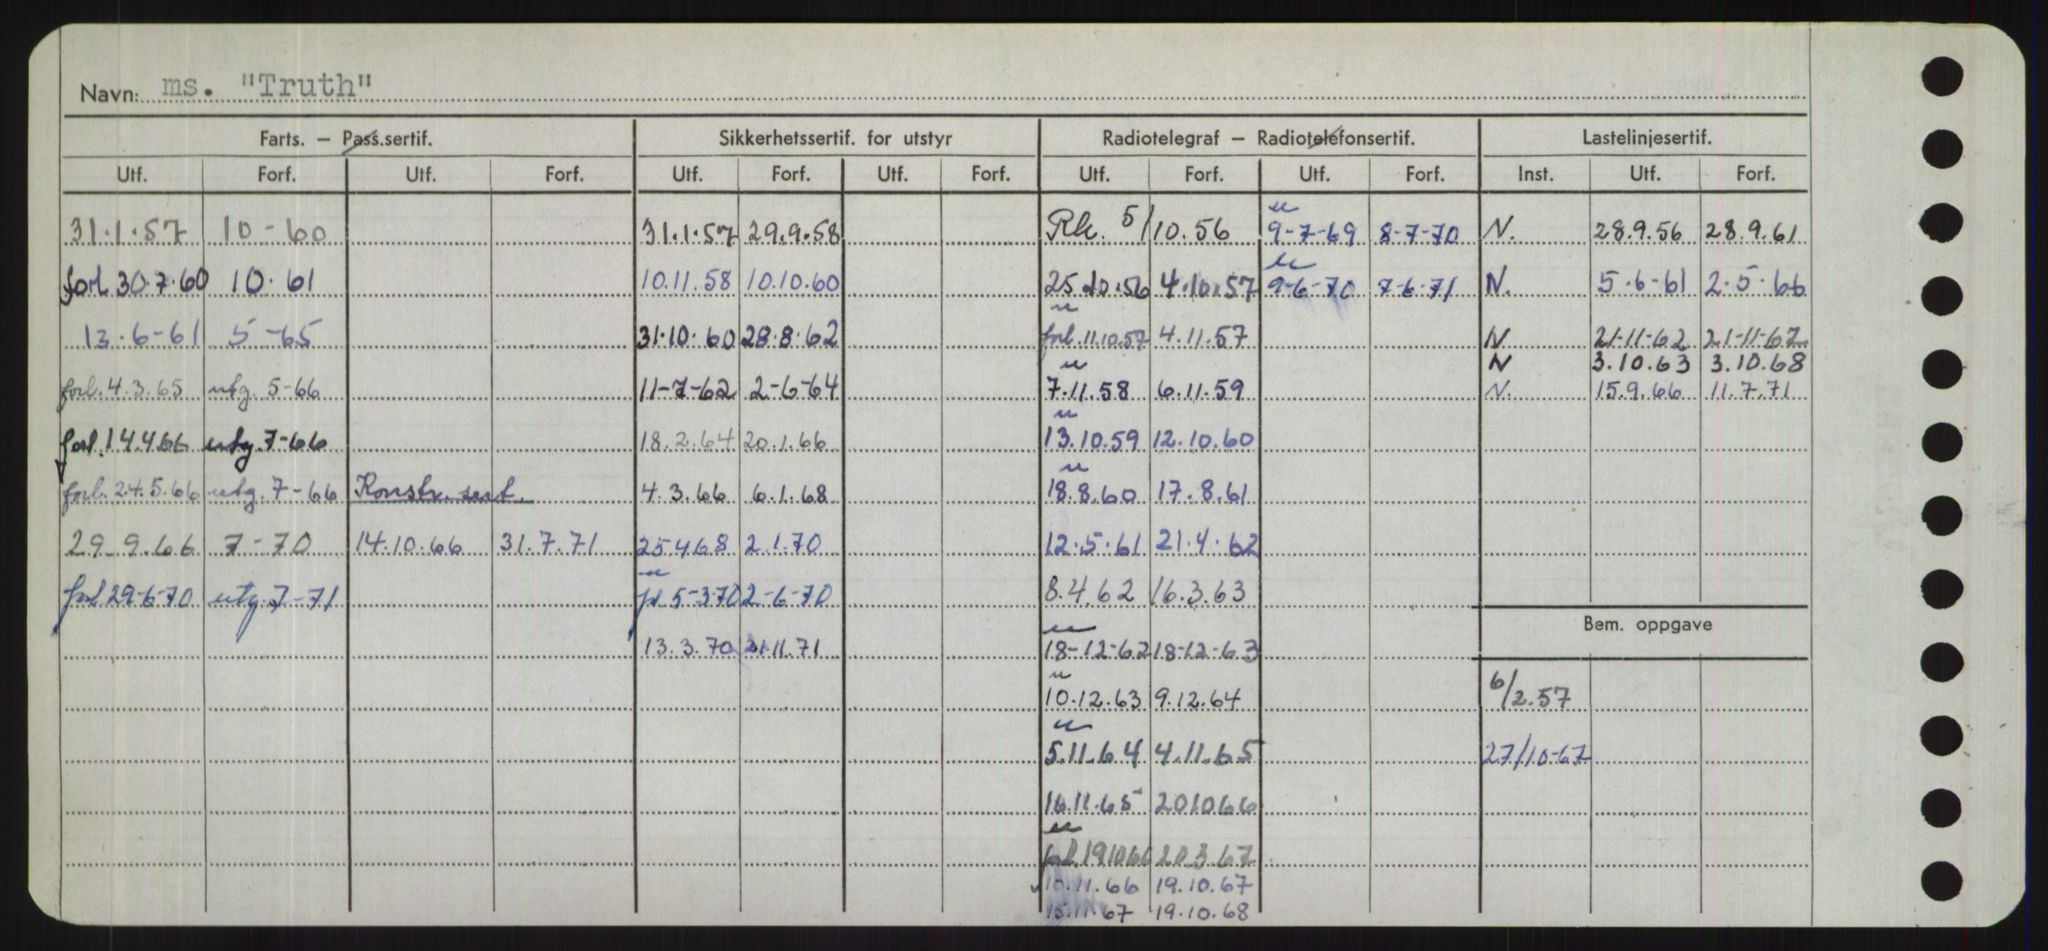 Navn: ms. "Truth"
Farts. – Pass.sertif. Sikkerhetssertif. for utstyr Radiotelegraf – Radiotelefonsertif. Lastelinjesertif.
Utf. Forf. Utf. Forf. Utf. Forf. Utf. Forf. Utf. Forf. Utf. Forf. Inst. Utf. Forf.
31.1.57 10-60 31.1.57 29.9.58 Rk. 5/10.56 9-7-69 8-7-70 N. 28.9.56 28.9.61
forl 30.7.60 10.61 10.11.58 10.10.60 25.10.56 4.10.57 9-6-70 7-6-71 N. 5-6-61 2.5.66
13.6-61 5-65 31.10.60 28.8.62 forl. 11.10.57 4.11.57 N 21-11-62 21-11-67
N 3.10.63 3.10.68
forl. 4.3.65 utg. 5-66 11-7-62 2-6-64 7.11.58 6.11.59 N. 15.9.66 11.7.71
forl. 14.4.66 utg. 7-66 18.2.64 20.1.66 13.10.59 12.10.60
forl. 24.5.66 utg. 7-66 Konstr. sert. 4.3.66 6.1.68 18.8.60 17.8.61
29.9.66 7-70 14.10.66 31.7.71 25.4.68 2.1.70 12.5.61 21.4.62
forl 29-6-70 utg. 7-71 fl 5-3-70 2-6-70 8.4.62 16.3.63
Bem. oppgave
13.3.70 21.11.71 18-12-62 18-12-63
10.12.63 9.12.64 6/2.57
5.11.64 4.11.65 27/10-67
16.11.65 20.10.66
forl. 19.10.66 20.3.67
10.11.66 19.10.67
15.11.67 19.10.68